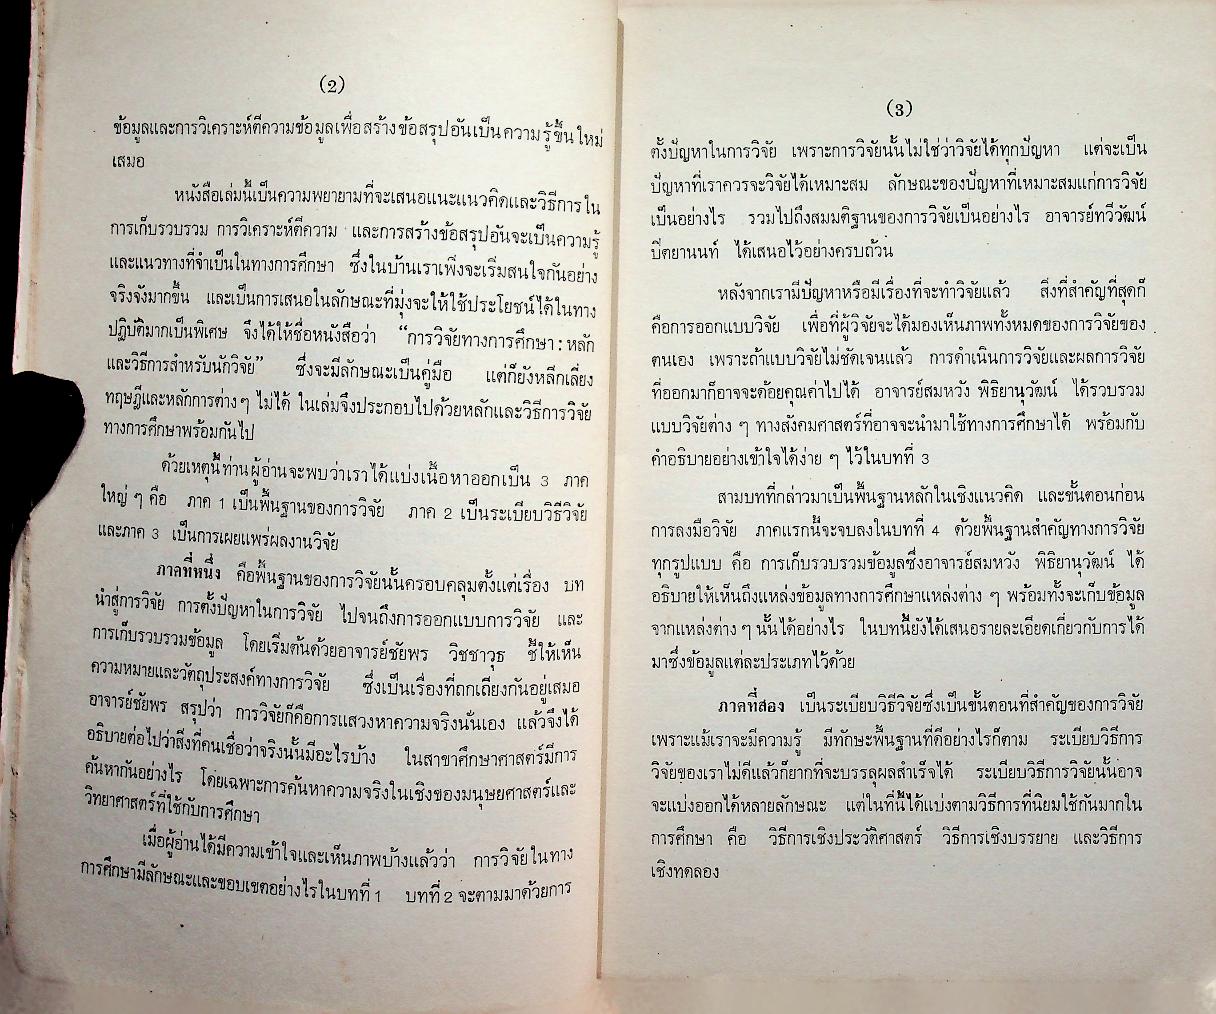 (2)
ข้อมูลและการวิเคราะห์ตีความข้อมูลเพื่อสร้างข้อสรุปอันเป็นความรู้ขึ้นใหม่
เสมอ
หนังสือเล่มนี้เป็นความพยายามที่จะเสนอแนะแนวคิดและวิธีการใน
การเก็บรวบรวม การวิเคราะห์ตีความ และการสร้างข้อสรุปอันจะเป็นความรู้
และแนวทางที่จำเป็นในทางการศึกษา ซึ่งในบ้านเราเพิ่งจะเริ่มสนใจกันอย่าง
จริงจังมากขึ้น และเป็นการเสนอในลักษณะที่มุ่งจะให้ใช้ประโยชน์ได้ในทาง
ปฏิบัติมากเป็นพิเศษ จึงได้ให้ชื่อหนังสือว่า “การวิจัยทางการศึกษา : หลัก
และวิธีการสำหรับนักวิจัย” ซึ่งจะมีลักษณะเป็นคู่มือ แต่ก็ยังหลีกเลี่ยง
ทฤษฎีและหลักการต่าง ๆ ไม่ได้ ในเล่มจึงประกอบไปด้วยหลักและวิธีการวิจัย
ทางการศึกษาพร้อมกันไป
ด้วยเหตุนี้ท่านผู้อ่านจะพบว่าเราได้แบ่งเนื้อหาออกเป็น 3 ภาค
ใหญ่ ๆ คือ ภาค 1 เป็นพื้นฐานของการวิจัย ภาค 2 เป็นระเบียบวิธีวิจัย
และภาค 3 เป็นการเผยแพร่ผลงานวิจัย
ภาคที่หนึ่ง คือพื้นฐานของการวิจัยนั้นครอบคลุมตั้งแต่เรื่อง บท
นำสู่การวิจัย การตั้งปัญหาในการวิจัย ไปจนถึงการออกแบบการวิจัย และ
การเก็บรวบรวมข้อมูล โดยเริ่มต้นด้วยอาจารย์ชัยพร วิชชาวุธ ชี้ให้เห็น
ความหมายและวัตถุประสงค์ทางการวิจัย ซึ่งเป็นเรื่องที่ถกเถียงกันอยู่เสมอ
อาจารย์ชัยพร สรุปว่า การวิจัยก็คือการแสวงหาความจริงนั่นเอง แล้วจึงได้
อธิบายต่อไปว่าสิ่งที่คนเชื่อว่าจริงนั้นมีอะไรบ้าง ในสาขาศึกษาศาสตร์มีการ
ค้นหากันอย่างไร โดยเฉพาะการค้นหาความจริงในเชิงของมนุษยศาสตร์และ
วิทยาศาสตร์ที่ใช้กับการศึกษา
เมื่อผู้อ่านได้มีความเข้าใจและเห็นภาพบ้างแล้วว่า การวิจัยในทาง
การศึกษามีลักษณะและขอบเขตอย่างไรในบทที่ 1 บทที่ 2 จะตามมาด้วยการ
(3)
ตั้งปัญหาในการวิจัย เพราะการวิจัยนั้นไม่ใช่ว่าวิจัยได้ทุกปัญหา แต่จะเป็น
ปัญหาที่เราควรจะวิจัยได้เหมาะสม ลักษณะของปัญหาที่เหมาะสมแก่การวิจัย
เป็นอย่างไร รวมไปถึงสมมติฐานของการวิจัยเป็นอย่างไร อาจารย์ทวีวัฒน์
ปิตยานนท์ ได้เสนอไว้อย่างครบถ้วน
หลังจากเรามีปัญหาหรือมีเรื่องที่จะทำวิจัยแล้ว สิ่งที่สำคัญที่สุดก็
คือการออกแบบวิจัย เพื่อที่ผู้วิจัยจะได้มองเห็นภาพทั้งหมดของการวิจัยของ
ตนเอง เพราะถ้าแบบวิจัยไม่ชัดเจนแล้ว การดำเนินการวิจัยและผลการวิจัย
ที่ออกมาก็อาจจะด้อยคุณค่าไปได้ อาจารย์สมหวัง พิธิยานุวัฒน์ ได้รวบรวม
แบบวิจัยต่าง ๆ ทางสังคมศาสตร์ที่อาจจะนำมาใช้ทางการศึกษาได้ พร้อมกับ
คำอธิบายอย่างเข้าใจได้ง่าย ๆ ไว้ในบทที่ 3
สามบทที่กล่าวมาเป็นพื้นฐานหลักในเชิงแนวคิด และขั้นตอนก่อน
การลงมือวิจัย ภาคแรกนี้จะจบลงในบทที่ 4 ด้วยพื้นฐานสำคัญทางการวิจัย
ทุกรูปแบบ คือ การเก็บรวบรวมข้อมูลซึ่งอาจารย์สมหวัง พิธิยานุวัฒน์ ได้
อธิบายให้เห็นถึงแหล่งข้อมูลทางการศึกษาแหล่งต่าง ๆ พร้อมทั้งจะเก็บข้อมูล
จากแหล่งต่าง ๆ นั้นได้อย่างไร ในบทนี้ยังได้เสนอรายละเอียดเกี่ยวกับการได้
มาซึ่งข้อมูลแต่ละประเภทไว้ด้วย
ภาคที่สอง เป็นระเบียบวิธีวิจัยซึ่งเป็นขั้นตอนที่สำคัญของการวิจัย
เพราะแม้เราจะมีความรู้ มีทักษะพื้นฐานที่ดีอย่างไรก็ตาม ระเบียบวิธีการ
วิจัยของเราไม่ดีแล้วก็ยากที่จะบรรลุผลสำเร็จได้ ระเบียบวิธีการวิจัยนั้นอาจ
จะแบ่งออกได้หลายลักษณะ แต่ในที่นี้ได้แบ่งตามวิธีการที่นิยมใช้กันมากใน
การศึกษา คือ วิธีการเชิงประวัติศาสตร์ วิธีการเชิงบรรยาย และวิธีการ
เชิงทดลอง